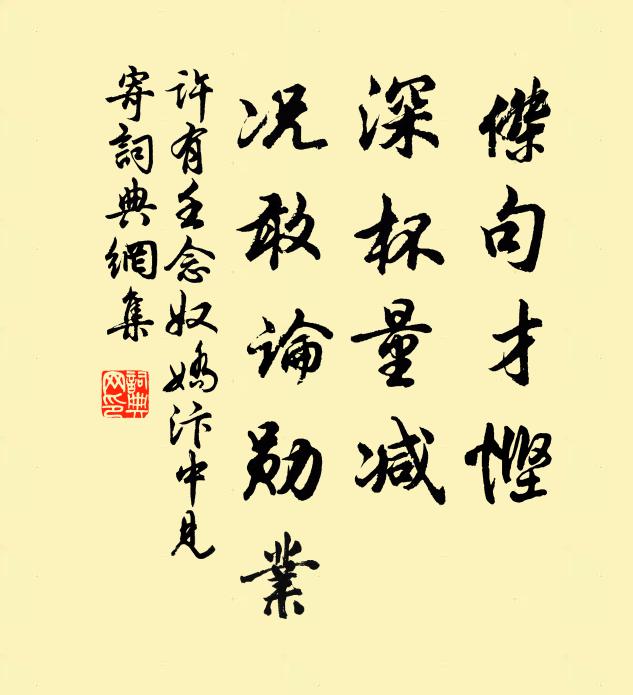 傑句才慳
深杯量减
况敢論勛業
許有壬念奴嬌汴中見
寄詞典網集
詞典
网印